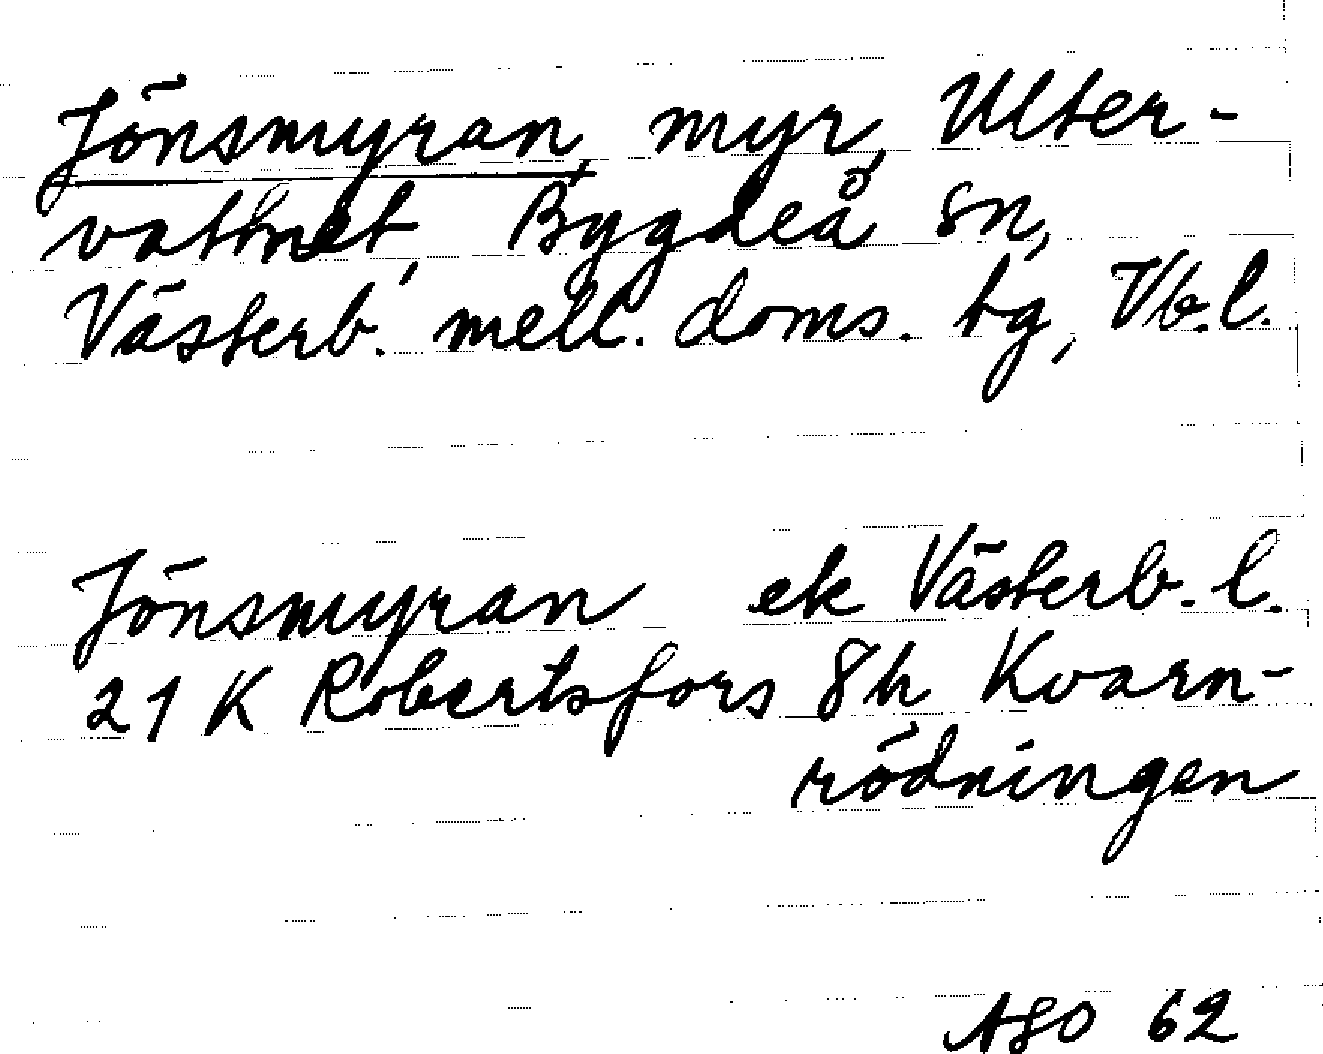 Jönsmyran, myr, Ulter-
vattnet, Bygdeå sn,
Västerb. mell. doms. tg, Vb.l.
Jönsmyran ek Västerb. l.
21 K Robertsfors 8h Kvarn-
rödningen
62